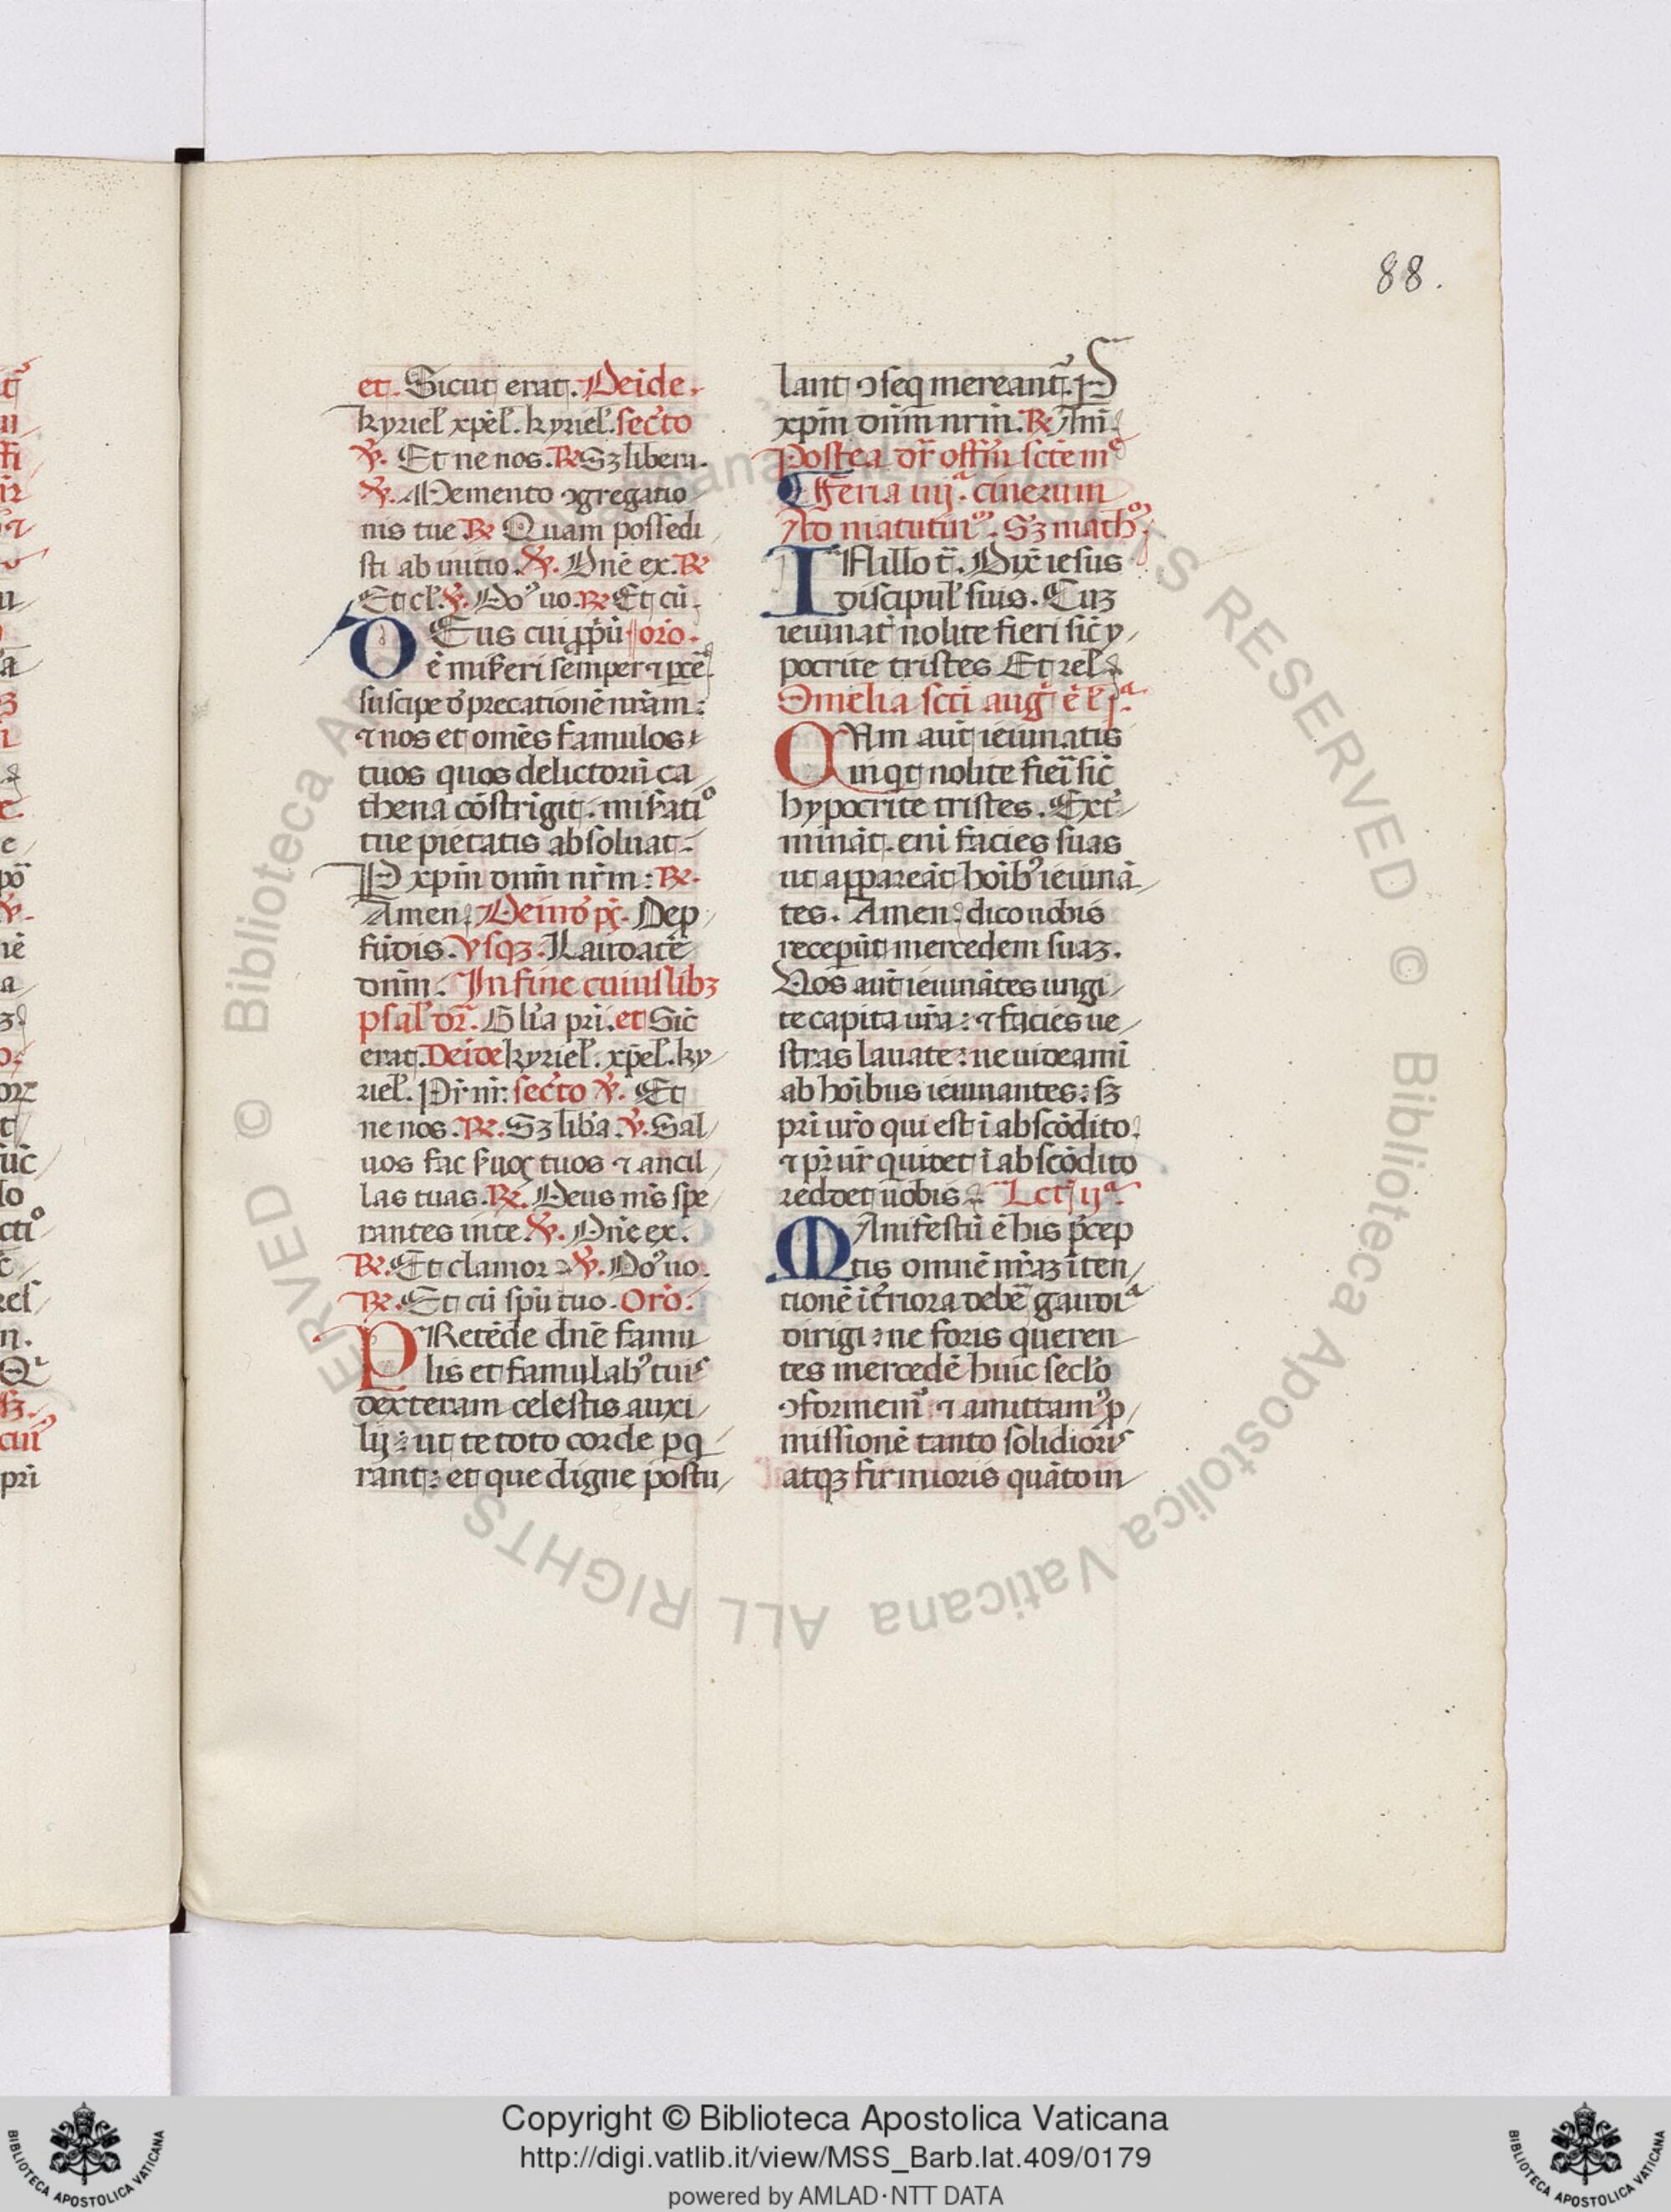 88.
et. Sicut erat. Deide.
kyriel̛ xp̄el̛. kyriel̛. sec̄to
℣. Et ne nos. ℞ Sꝫ libera.
℣. Memento ꝯgregatio
nis tue ℞ Quam possedi
sti ab initio. ℣. Dn̄e ex. ℞
Et cl̛. ℣. Doꝰ uo. ℞ Et cū.
DEus cui ꝓpⁱū oro.
ē mis̄eri semper ⁊ ꝑcē
suscipe dp̄recationē nr̄am:
⁊ nos et om̄es famulos
tuos quos delictorū ca
thena cōstrigit. mis̄atiº
tue pietatis absoluat.
P xp̄m dnm̄ nr̄m: ℞.
Amen. Deinō pꝰ. Dep
fūdis. vsqꝫ. Laudate
dnm̄. In fine cuiuslibꝫ
psal̛ dr̄. Gl̄ia pri. et Sic̄
erat. Deide kyriel̛. xp̄el̛. ky
riel̛. Pr̄ nr̄. sec̄to ℣. Et
ne nos. ℞. Sꝫ lib̄a. ℣. Sal
uos fac s̄uoꝝ tuos ⁊ ancil
las tuas. ℞. Deus ms̄ spe
rantes in te. ℣. Dn̄e ex.
℞. Et clamor ℣. Doꝰ uo.
℞. Et cū spū tuo. Orō.
PRetēde dn̄e famu
lis et famulabꝰ tuis
dexteram celestis auxi
lij: ut te toto corde ꝑq
rant: et que digne postu
lant ꝯseq mereant̄. P
xp̄m dnm̄ nrm̄. ℞ Am̄
Postea dr̄ offm̄ scte mᵉ
Feria iiijᵃ. cinerum
Ad matutinº. Sꝫ mathº.
INillo t̄. Dix̄ iesus
discipul̛ suis. Cuꝫ
ieiunat̄ nolite fieri sic̄ y
pocrite tristes Et rel̛
Omelia scti auḡ ē lc̄ jᵃ.
QVm aūt ieiunatis
inqt nolite fieri sic̄
hypocrite tristes. Ext̄
mināt. eni facies suas
ut appareāt hoibꝰ ieiunā
tes. Amen dico uobis
receperūt mercedem suaꝫ.
Vos aūt ieiunātes ungi
te capita ur̄a: ⁊ facies ue
stras lauate: ne uideami
ab hoibus ieiunantes: sꝫ
pri ur̄o qui est ī abscōdito.
⁊ pr̄ ur̄ qui uidet ī abscōdito
reddet uobis. Lctj ijᵃ
MAnifestū ē his p̄cep
tis omnē nr̄aꝫ īten
tionē īt̄riora debē gaudiᵃ
dirigi: ne foris queren
tes mercedē huic seclo
ꝯformemꝰ ⁊ amittamꝰ ꝓ
missionē tanto solidioris
atqꝫ firmioris quāto in
Copyright © Biblioteca Apostolica Vaticana
http://digi.vatlib.it/view/MSS_Barb.lat.409/0179
powered by AMLAD·NTT DATA
BIBLIOTECA APOSTOLICA VATICANA
BIBLIOTECA APOSTOLICA VATICANA
© Biblioteca Apostolica Vaticana ALL RIGHTS RESERVED © Biblioteca Apostolica Vaticana ALL RIGHTS RESERVED